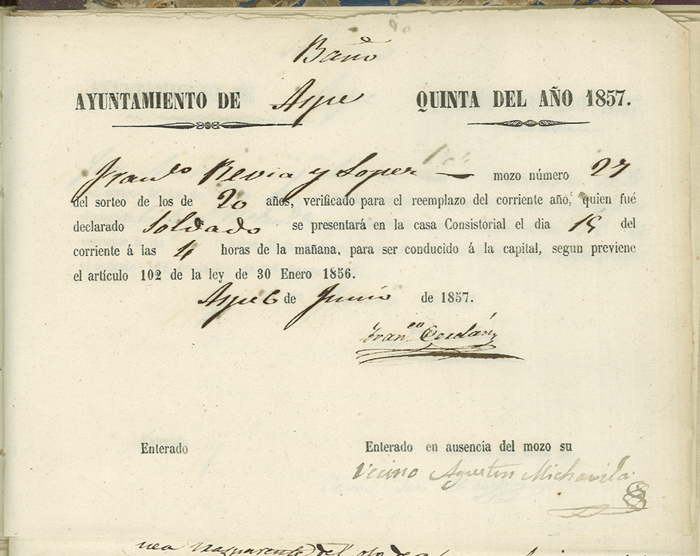 Baño
AYUNTAMIENTO DE Aspe QUINTA DEL AÑO 1857.
Fran.co Revia y Loper — mozo número 27
del sorteo de los de 20 años, verificado para el reemplazo del corriente año, quien fué
declarado Soldado se presentará en la casa Consistorial el dia 15 del
corriente á las 4 horas de la mañana, para ser conducido á la capital, segun previene
el artículo 102 de la ley de 30 Enero 1856.
Aspe 6 de Junio de 1857.
Fran.co Cerdán
Enterado
Enterado en ausencia del mozo su
Vecino Agustin Michavila
del